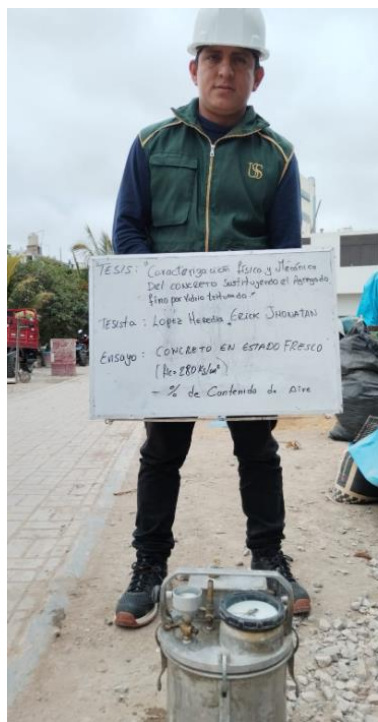 USS
TESIS: "Caracterización física y Mecánica
Del concreto Sustituyendo el Agregado
fino por Vidrio triturado."
Tesista: Lopez Heredia Erick Jhonatan
Ensayo: CONCRETO EN ESTADO FRESCO
(f'c= 280 Kg/cm²)
- % de Contenido de Aire